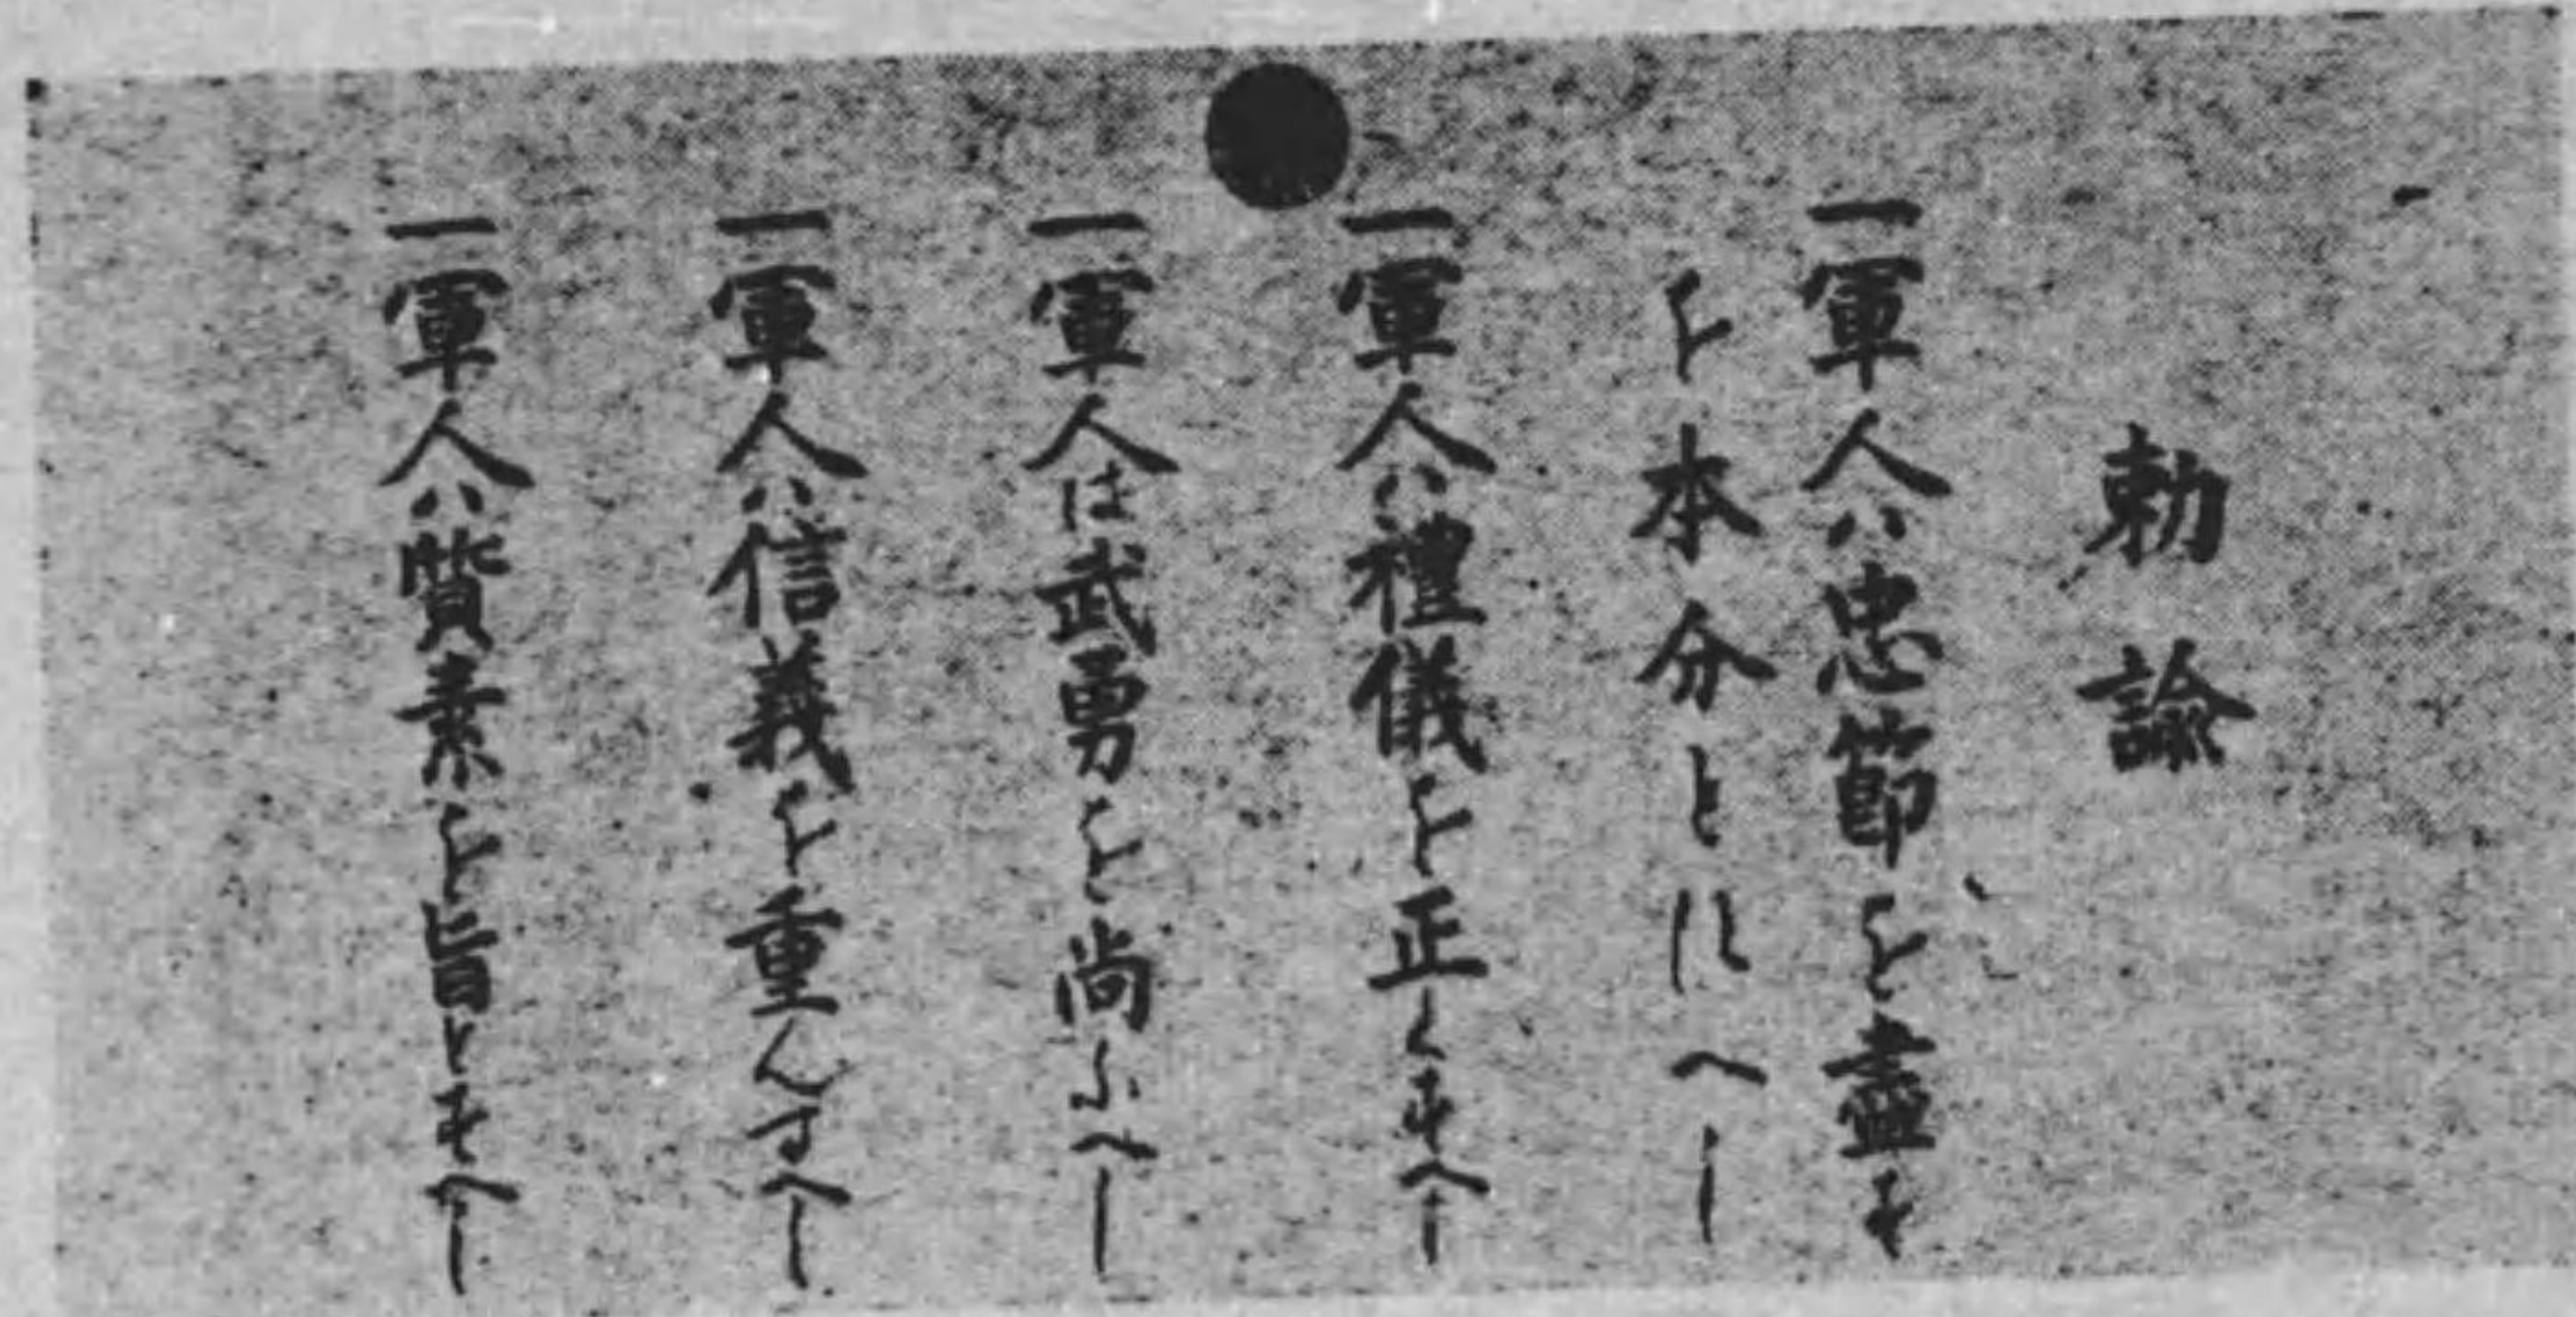 勅諭
一軍人ハ忠節を盡す
を本分とすへし
一軍人ハ禮儀を正くすへし
一軍人は武勇を尚ふへし
一軍人ハ信義を重んすへし
一軍人ハ質素を旨とすへし